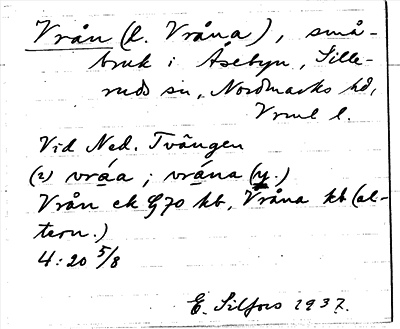 Vrån (l. Vråna), små-
bruk i Åsebyn, Sille-
ruds sn, Nordmarks hd,
Vrml l.
Vid Ned. Tvängen
(2) vráa; vrána (y.)
Vrån ek G70 kb, Vråna kb (al-
tern.)
4:20 5/8
E. Silfors 1937.